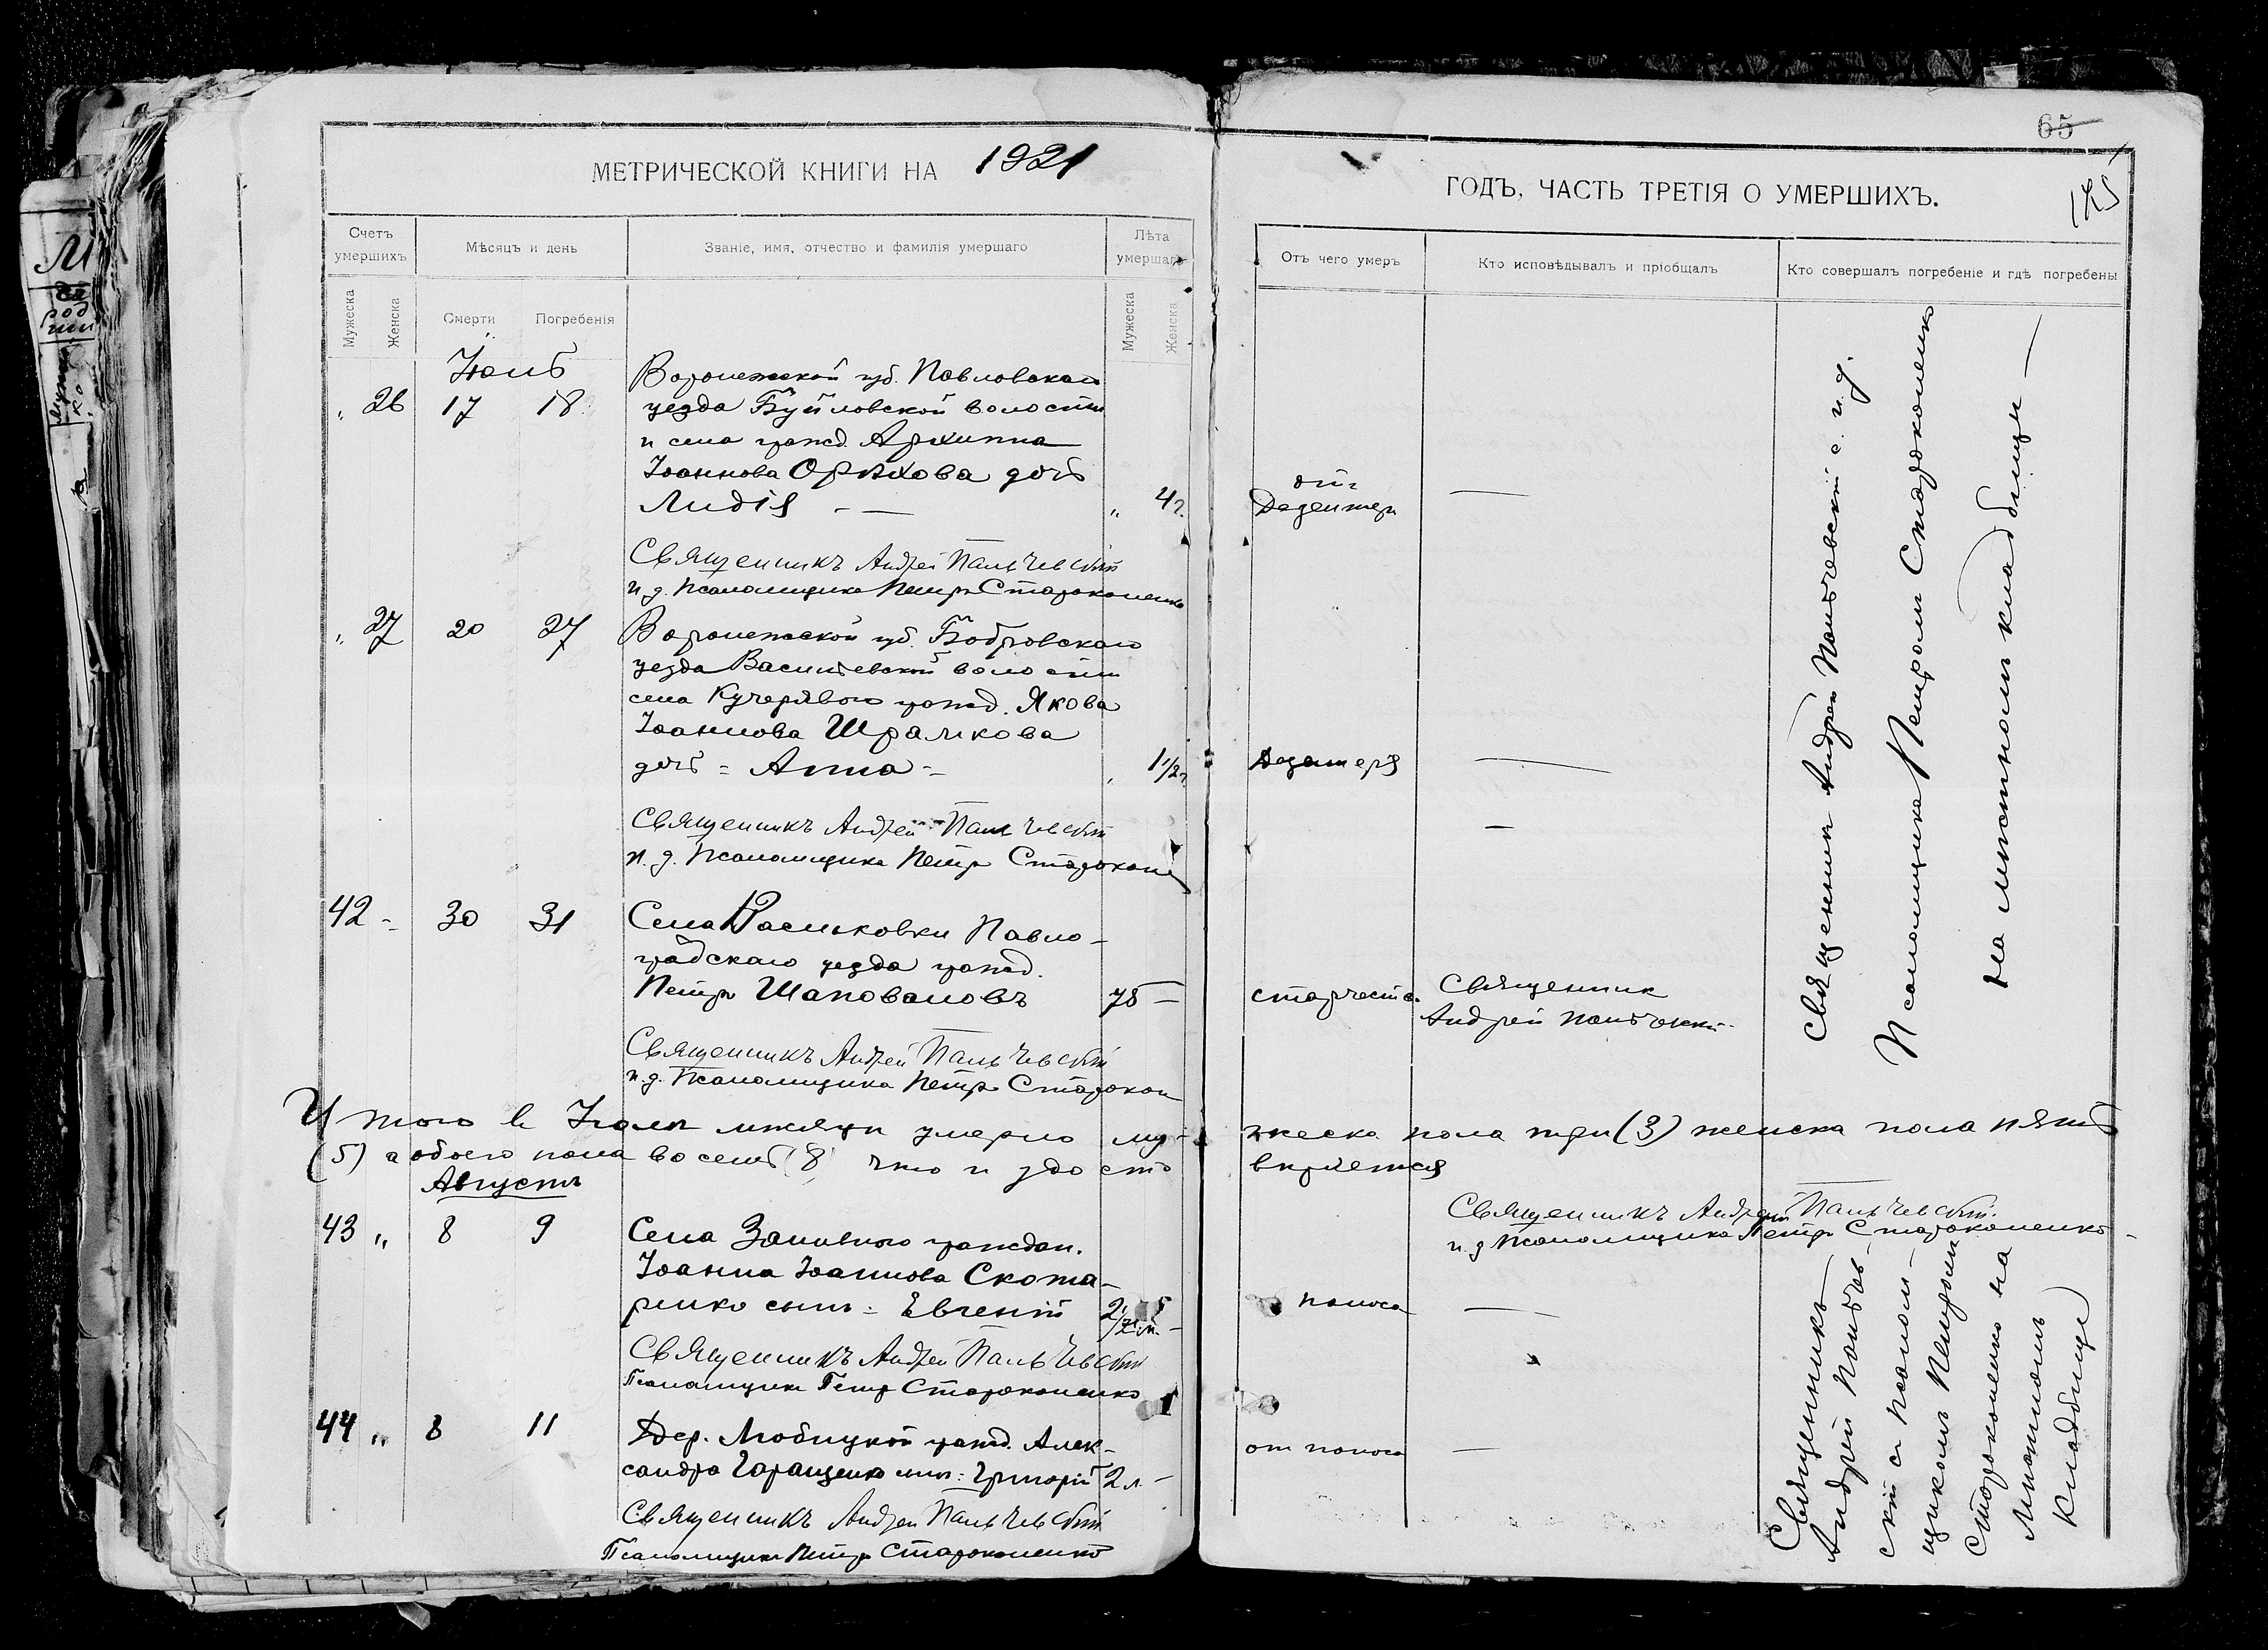 65
МЕТРИЧЕСКОЙ КНИГИ НА 1921
ГОДЪ, ЧАСТЬ ТРЕТІЯ О УМЕРШИХЪ.
Счетъ умершихъ
Мѣсяцъ и день
Званіе, имя, отчество и фамилія умершаго
Лѣта умершаго
Отъ чего умеръ
Кто исповѣдывалъ и пріобщалъ
Кто совершалъ погребеніе и гдѣ погребены
Мужеска
Женска
Смерти
Погребенія
Мужеска
Женска
Іюль
" 26 17 18
Воронежской губ. Павловскаго
уезда Буйловской волости
и села гражд. Архиппа
Іоаннова Орѣхова дочь
Лидія — — " 4 г.
от
—
Священникъ Андрей Пальчевскій
и. д. Псаломщика Петръ Староконенко
" 27 20 27
Воронежской губ. Бобровскаго
уезда Васильевской волости
села Кучеряваго гражд. Якова
Іоаннова Шрамкова
дочь = Анна = " 1 1/2 г.
Дезентерія
—
Священникъ Андрей Пальчевскій
—
и. д. Псаломщика Петръ Старокон
42 - 30 31
Села Васильковки Павло-
градскаго уезда гражд.
Петръ Шаповаловъ 75 —
Священник
Андрей
Священникъ Андрей Пальчевскій
и. д. Псаломщика Петръ Старокон
Священник Андрей Пальчевскій с и. д.
Псаломщика Петром Староконенко
на мѣстном кладбищѣ —
Итого в Іюлѣ мѣсяцѣ умерло мужеска пола три (3) женска пола пять
(5) а обоего пола восемь (8) что и удостовѣряется
Священникъ Андрей Пальчевскій
и. д. Псаломщика Петръ Староконенко
Августъ
43 " 8 9
Села граждан.
Іоанна Іоаннова Скота-
ренко сынъ = Евгеній
поноса
—
Священникъ Андрей Пальчевскій
Псаломщикъ Петръ Староконенко
44 " 8 11
Дер. Любицкой гражд. Алек-
сандра Гаращенко сынъ: Григорій 2 л. —
от поноса
—
Священникъ Андрей Пальчевскій
Псаломщикъ Петръ Староконенко
Священникъ
Андрей Пальчев-
скій с Псалом-
щиком Петром
Староконенко на
мѣстном
кладбищѣ